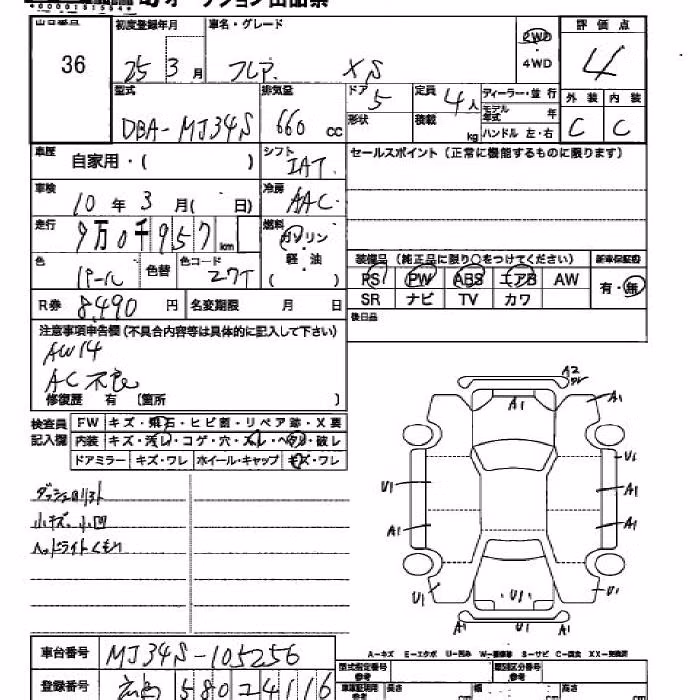 オークション出品票
出品番号 初度登録年月 車名・グレード 2WD・4WD 評価点
36 25年3月 フレア XS 4
型式 排気量 ドア 定員 ディーラー・並行 外装 内装
DBA-MJ34S 660cc 5 4人 モデル年式 年 C C
形状 積載 kg ハンドル 左・右
車歴 自家用・( ) シフト IAT セールスポイント(正常に機能するものに限ります)
車検 10年3月( 日) 冷房 AAC
走行 9万0千957km 燃料 ガソリン・軽油 ( )
装備品(純正品に限り○をつけてください) 新車保証書
色 パール 色替 色コード 27T PS PW ABS エアB AW 有・無
R券 8,490円 名変期限 月 日 SR ナビ TV カワ
後日品
注意事項申告欄(不具合内容等は具体的に記入して下さい)
AW14
AC不良
修復歴 有 〔箇所 〕
検査員記入欄 FW キズ・飛石・ヒビ割・リペア跡・X要
内装 キズ・汚レ・コゲ・穴・スレ・ヘタリ・破レ
ドアミラー キズ・ワレ ホイール・キャップ キズ・ワレ
小キズ、小凹
ヘッドライトくもり
A2
A1 A1
U1 U1
A1
A1 A1
U1 U1 U1
A1 A1
A-キズ E-エクボ U-凹み W-補修跡 S-サビ C-腐食 XX-交換済
車台番号 MJ34S-105256 型式指定番号 参考 類別区分番号 参考
登録番号 580 24116 長さ cm 幅 cm 高さ cm